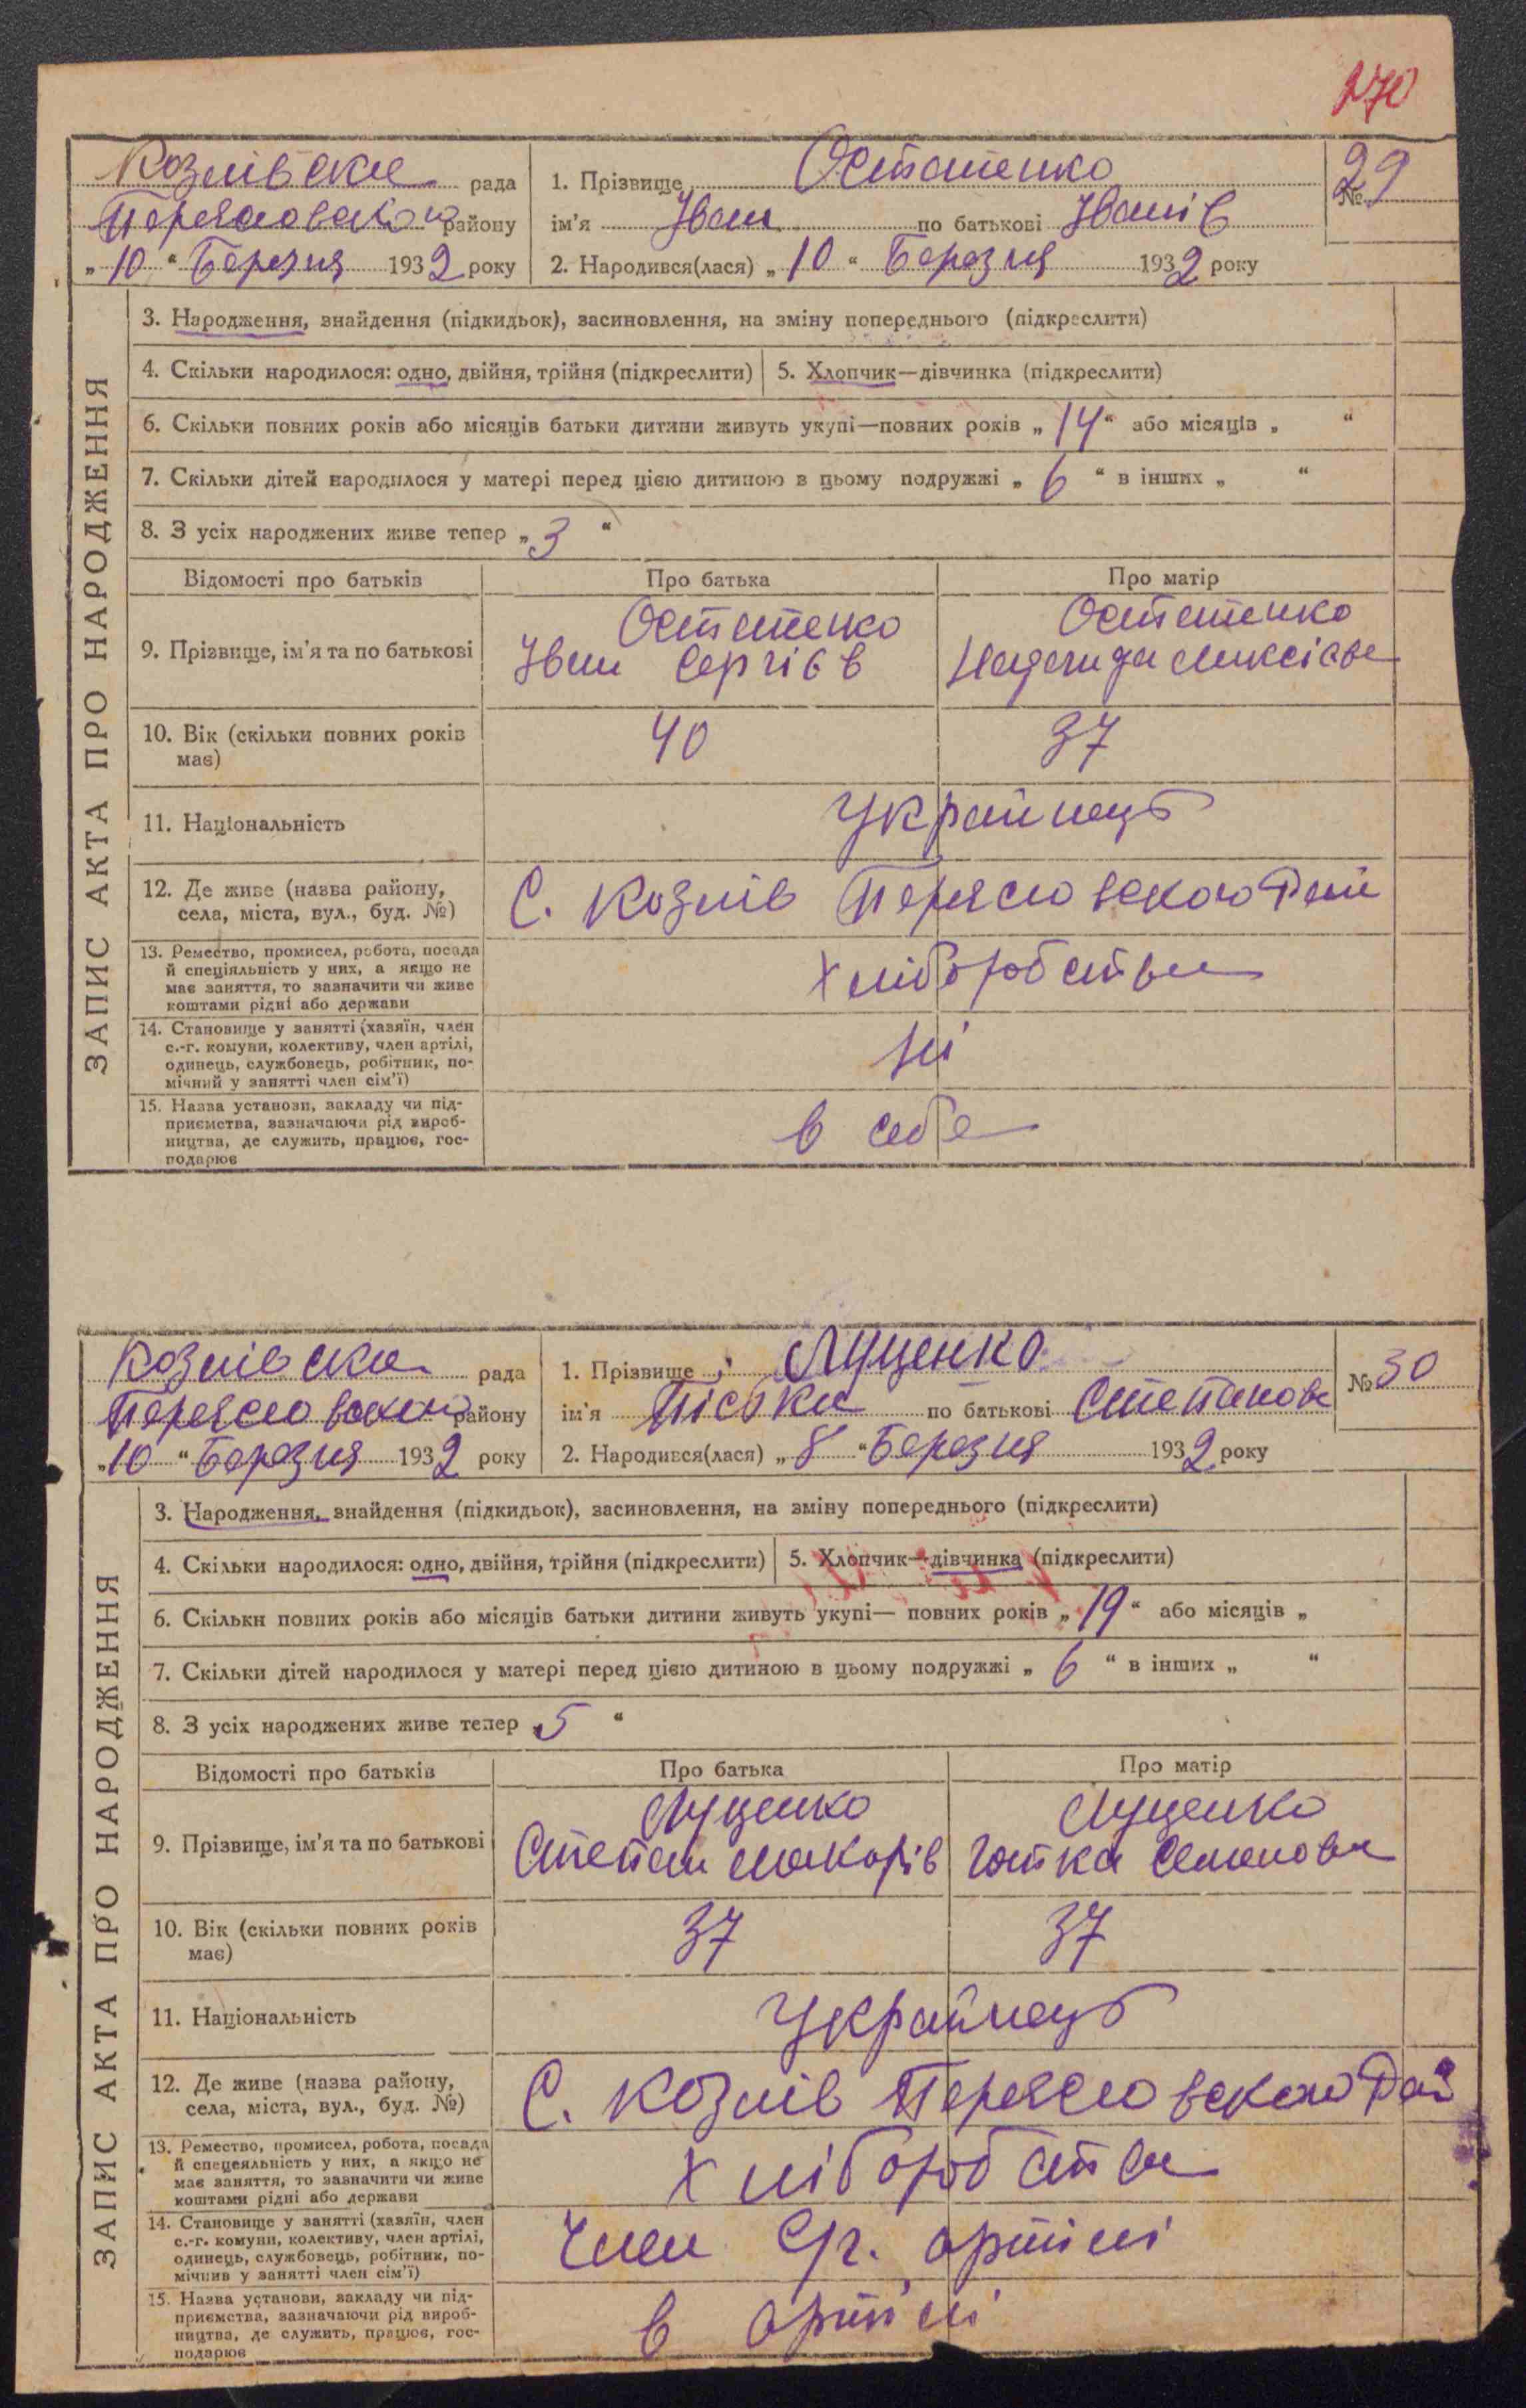 270
Козлівска рада
Переясловского району
„ 10 “ Березня 1932 року
1. Прізвище Остапенко
ім'я Іван по батькові Іванів
2. Народився(лася) „ 10 “ Березня 1932 року
№ 29
ЗАПИС АКТА ПРО НАРОДЖЕННЯ
3. Народження, знайдення (підкидьок), засиновлення, на зміну попереднього (підкреслити)
4. Скільки народилося: одно, двійня, трійня (підкреслити)
5. Хлопчик—дівчинка (підкреслити)
6. Скільки повних років або місяців батьки дитини живуть укупі—повних років „ 14 “ або місяців „ “
7. Скільки дітей народилося у матері перед цією дитиною в цьому подружжі „ 6 “ в інших „ “
8. З усіх народжених живе тепер „ 3 “
Відомості про батьків
Про батька
Про матір
9. Прізвище, ім'я та по батькові
Остапенко
Іван Сергіїв
Остапенко
10. Вік (скільки повних років
має)
40
37
11. Національність
Українець
12. Де живе (назва району,
села, міста, вул., буд. №)
С. Козлів Переясловского Рай
13. Ремество, промисел, робота, посада
й спеціяльність у них, а якщо не
має заняття, то зазначити чи живе
коштами рідні або держави
Хліборобства
14. Становище у занятті (хазяїн, член
с.-г. комуни, колективу, член артілі,
одинець, службовець, робітник, по-
мічний у занятті член сім'ї)
ні
15. Назва установи, закладу чи під-
приємства, зазначаючи рід вироб-
ництва, де служить, працює, гос-
подарює
в себе
Козлівска рада
Переясловского району
„ 10 “ Березня 1932 року
1. Прізвище Луценко
ім'я по батькові Степанова
2. Народився(лася) „ 8 “ Березня 1932 року
№ 30
ЗАПИС АКТА ПРО НАРОДЖЕННЯ
3. Народження, знайдення (підкидьок), засиновлення, на зміну попереднього (підкреслити)
4. Скільки народилося: одно, двійня, трійня (підкреслити)
5. Хлопчик—дівчинка (підкреслити)
6. Скільки повних років або місяців батьки дитини живуть укупі— повних років „ 19 “ або місяців „
7. Скільки дітей народилося у матері перед цією дитиною в цьому подружжі „ 6 “ в інших „ “
8. З усіх народжених живе тепер „ 5 “
Відомості про батьків
Про батька
Про матір
9. Прізвище, ім'я та по батькові
Луценко
Степан Макарів
Луценко
Гапка Семенова
10. Вік (скільки повних років
має)
37
37
11. Національність
Українець
12. Де живе (назва району,
села, міста, вул., буд. №)
С. Козлів Переясловского Рай
13. Ремество, промисел, робота, посада
й спецеяльність у них, а якщо не
має заняття, то зазначити чи живе
коштами рідні або держави
Хліборобства
14. Становище у занятті (хазяїн, член
с.-г. комуни, колективу, член артілі,
одинець, службовець, робітник, по-
мічнив у занятті член сім'ї)
Член С/г. артілі
15. Назва установи, закладу чи під-
приємства, зазначаючи рід вироб-
ництва, де служить, працює, гос-
подарює
в артілі